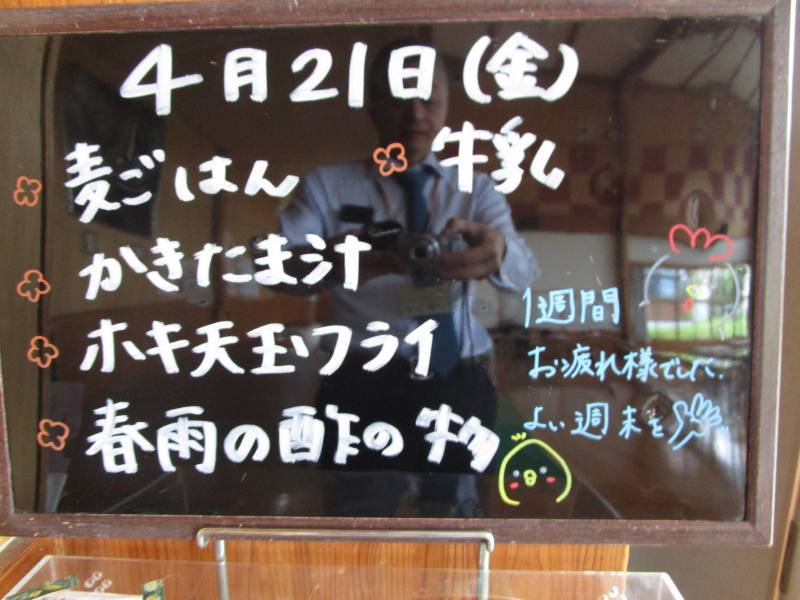 4月21日(金)
麦ごはん
牛乳
かきたま汁
ホキ天玉フライ
春雨の酢の物
1週間
お疲れ様でした.
よい週末を